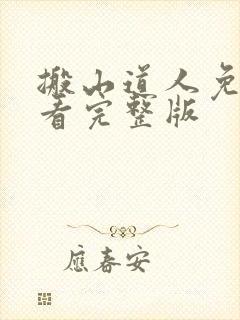 搬山道人免
看完整版
應春安